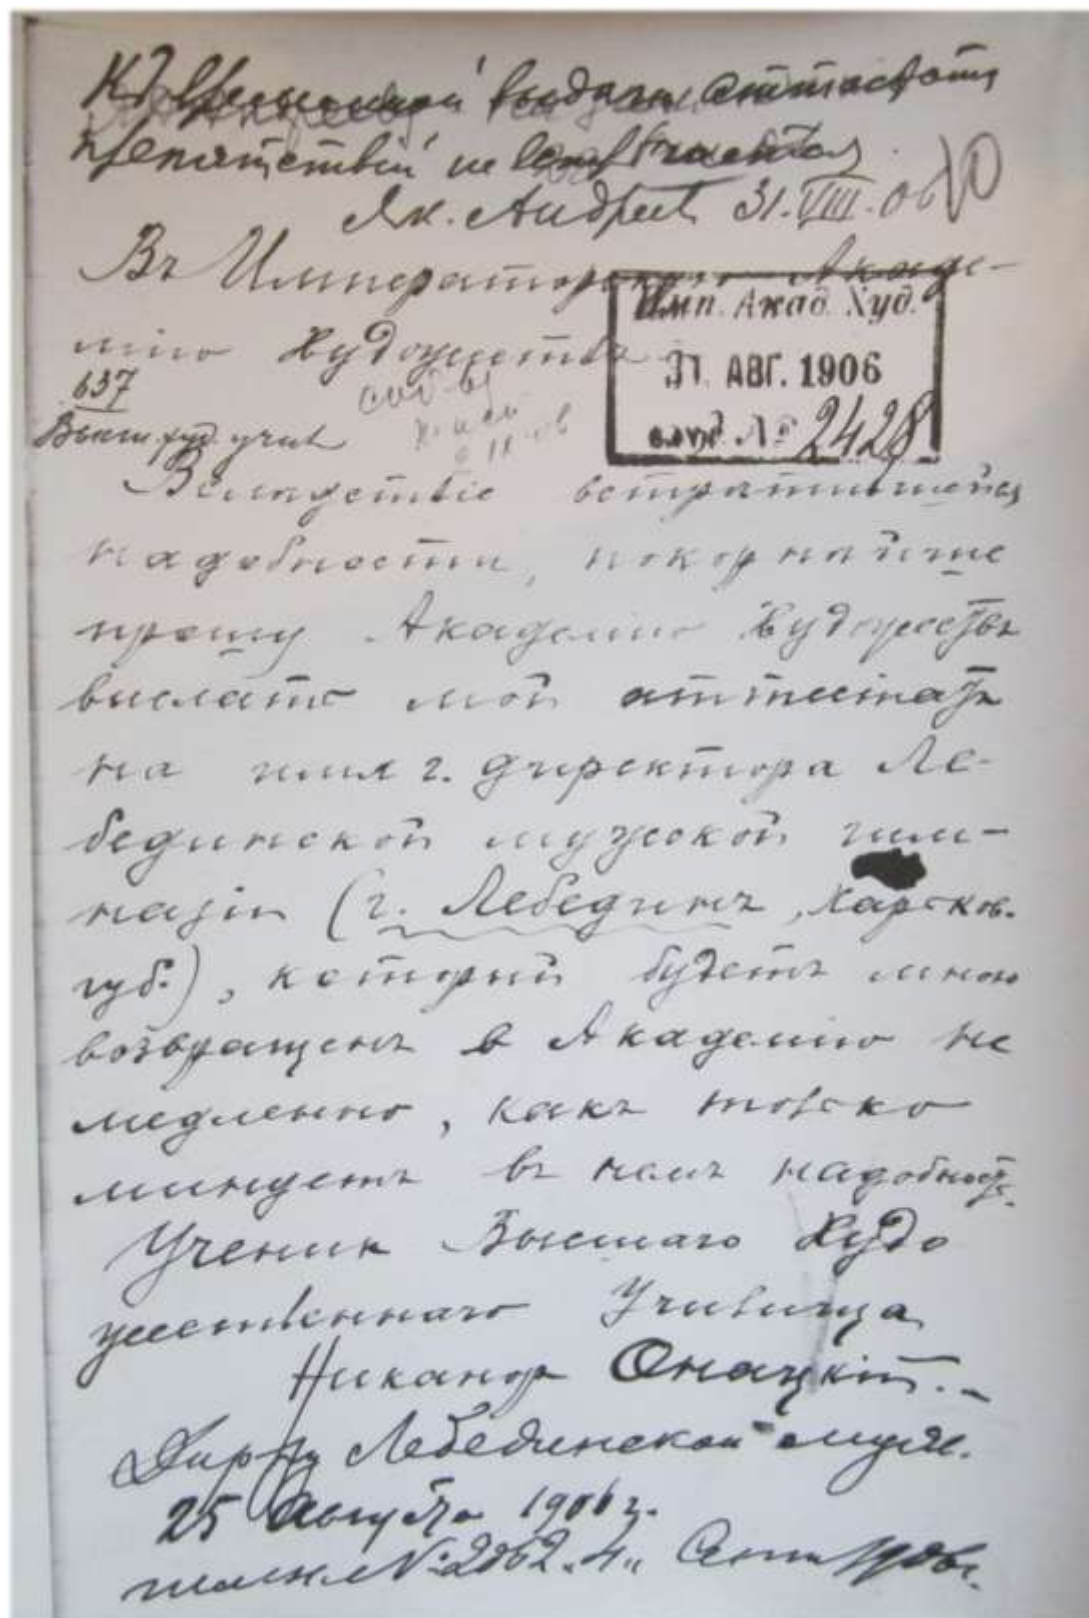 Къ временной выдачи аттестата
препятствій не встрѣчается
Як. Андреев 31.VIII.06
Въ Императорскую Акаде-
мію Художествъ
Имп. Акад. Худ.
31 АВГ. 1906
вход. № 2428
637
Высш. худ. учил
Вследствіе встратившейся
надобности, покорнѣйше
прошу Академію Художествъ
выслать мой аттестатъ
на имя г. директора Ле-
бединской мужской гим-
назіи (г. Лебединъ, Харьков.
губ.), который будетъ мною
возвращенъ в Академію не
медленно, какъ только
минуетъ въ немъ надобность.
Ученик Высшаго Худо
жественнаго Училища
Никанор Онацкій.
Дир-ру Лебединской муж.
25 Августа 1906 г.
гимн. № 2062. 4